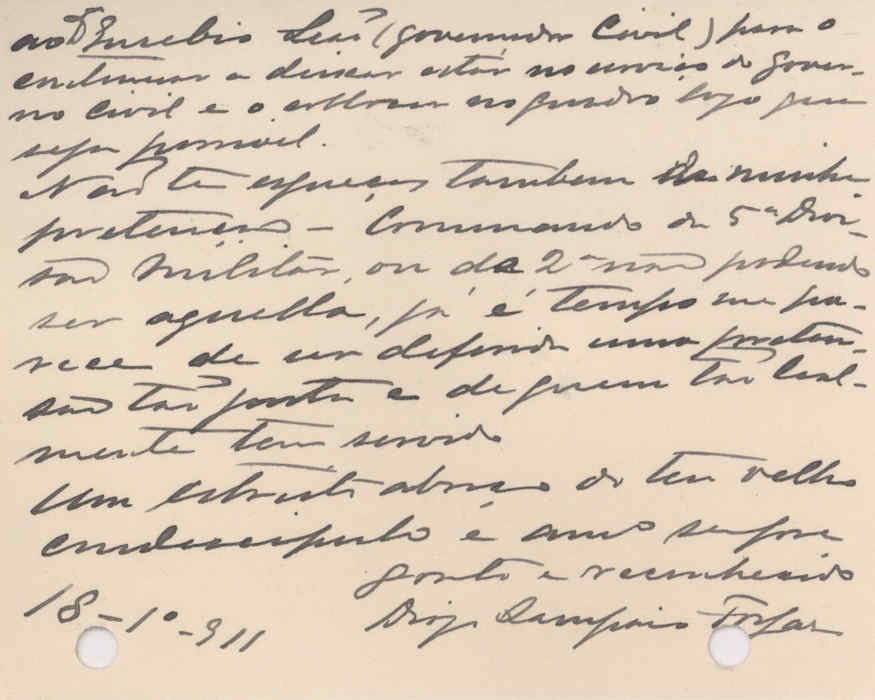 ao Dr Eusebio Leão (governador Civil) para o
continuar a deixar estár no serviço do Gover-
no Civil e o collocar no quadro logo que
seja possivel.
Não te esqueças tambem da minha
pretenção - Commando da 5ª Divi-
são Militár, ou da 2ª não podendo
ser aquella, já é tempo me pa-
rece de ser deferida uma preten-
são tão justa e de quem tão leal-
mente tem servido
Um estreito abraço do teu velho
condiscipulo e amº sempre
grato e reconhecido
18-1º-911 Sampaio